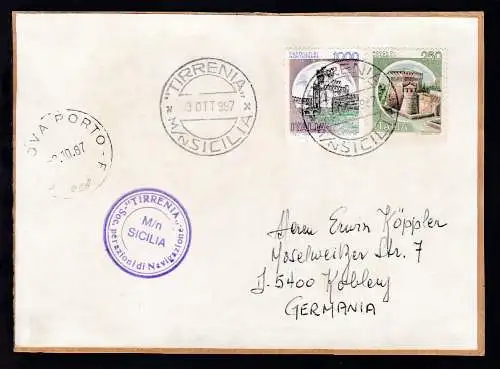 1000
250
ITALIA
ITALIA
"TIRRENIA"
3 OTT 1987
M/n SICILIA
"TIRRENIA"
M/n SICILIA
OVA PORTO - F
.10.87
"TIRRENIA"
Soc. per azioni di Navigazione
M/n
SICILIA
Herrn Erwin Köppler
Moselweitzer Str. 7
D-5400 Koblenz
GERMANIA